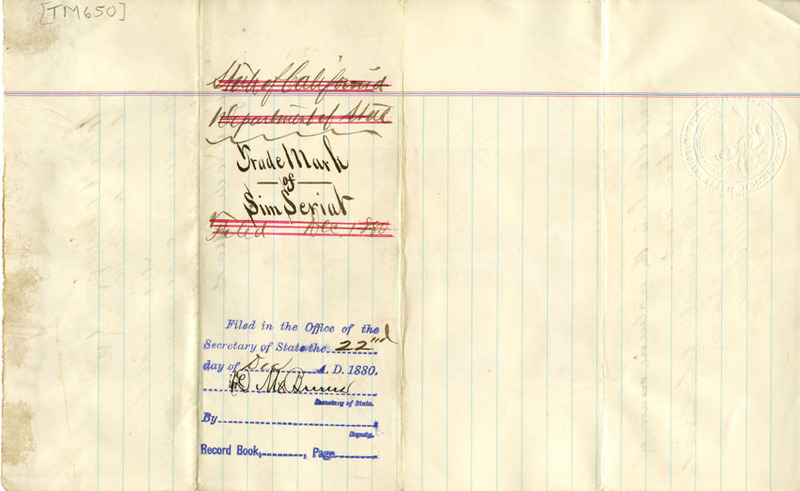 [TM650]
State of California
Department of State
Trade Mark
of
Sim Seriat
Filed Dec. 1880
Filed in the Office of the
Secretary of State the 22nd
day of Dec A. D. 1880.
Secretary of State.
By
Deputy.
Record Book, , Page